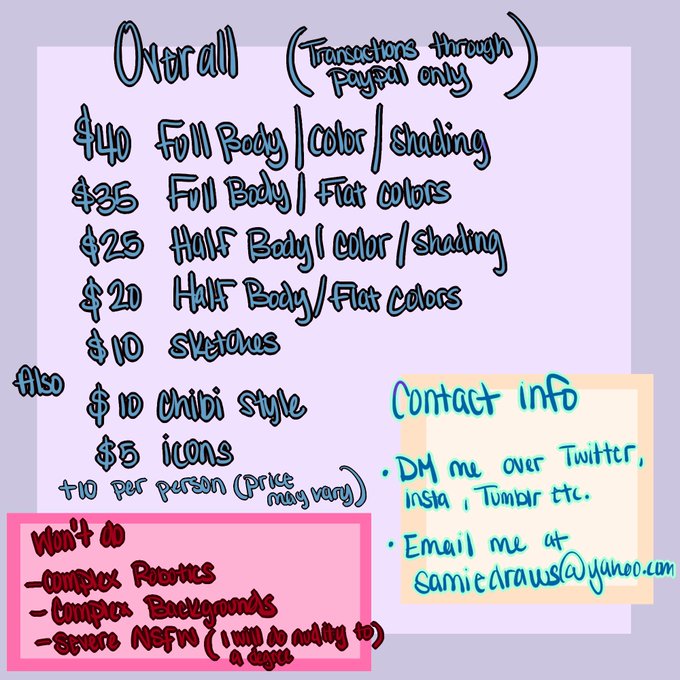 Overall (Transactions through
paypal only)
$40 Full Body / color / shading
$35 Full Body / Flat colors
$25 Half Body / color / shading
$20 Half Body / Flat colors
$10 sketches
Also
$10 Chibi style
$5 icons
+10 per person (price
may vary)
Contact info
• DM me over Twitter,
insta, Tumblr etc.
• Email me at
samiedraws@yahoo.com
Won't do
- complex Robotics
- Complex Backgrounds
- Severe NSFW (I will do nudity to)
a degree